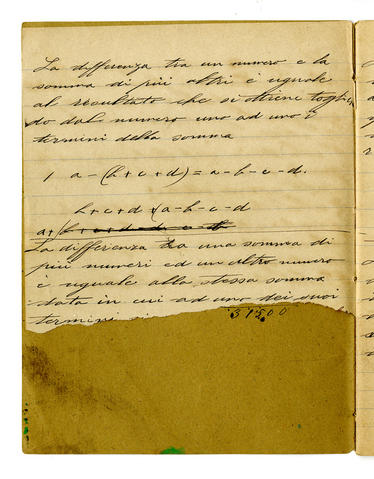 La differenza tra un numero e la
somma di più altri è uguale
al resultato che si ottiene toglien
do dal numero uno ad uno i
termini della somma
1 a-(b+c+d)=a-b-c-d.
b+c+d+(a-b-c-d
a+(b+c+d-b-c-d
La differenza tra una somma di
più numeri ed un altro numero
è uguale alla stessa somma
data in cui ad uno dei suoi
termini
31500